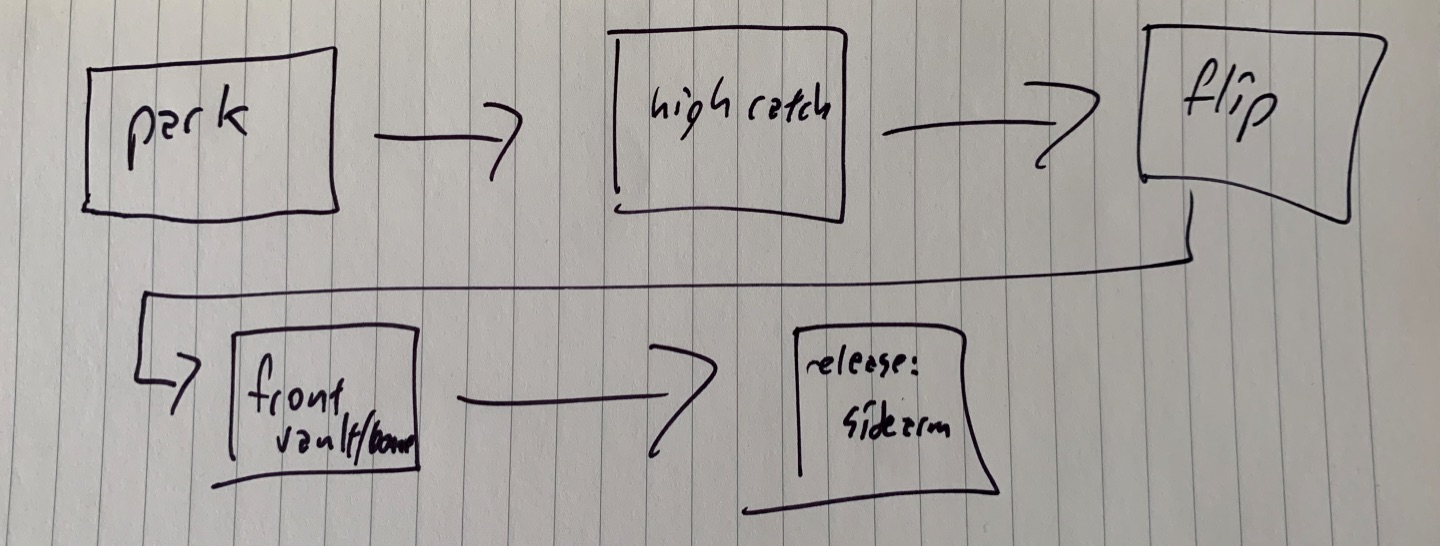 park
high catch
flip
front
vault/
release:
sidearm